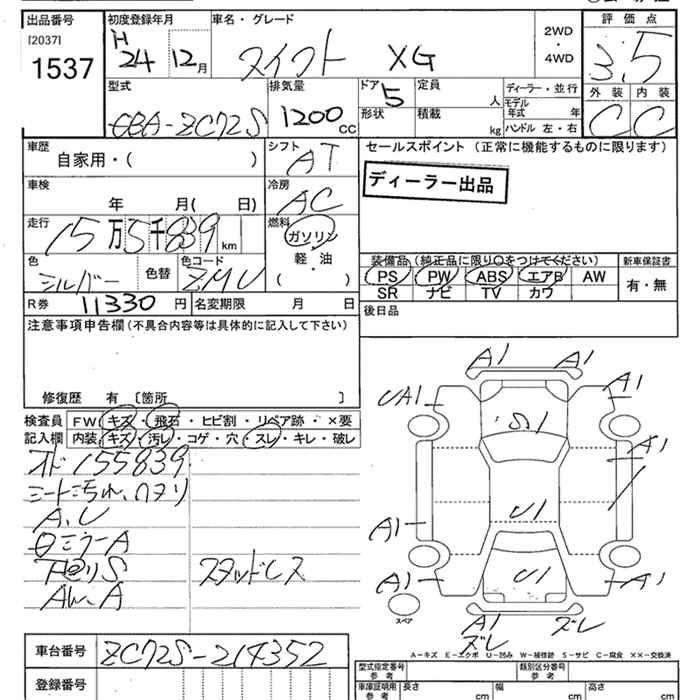 出品番号 初度登録年月 車名・グレード 評価点
[2037] 1537
H 24 12月 スイフト XG 2WD・4WD 3.5
型式 排気量 ドア 5 定員 人 ディーラー・並行 外装 内装
CBA-ZC72S 1200cc 形状 積載 kg モデル年式 年 ハンドル 左・右 C C
車歴 シフト セールスポイント (正常に機能するものに限ります)
自家用・( ) AT
ディーラー出品
車検 冷房
年 月( 日) AC
走行 燃料
15万5千839km ガソリン 軽・油 ( )
色 色替 色コード 装備品(純正品に限り○をつけてください) 新車保証書
シルバー ZMU PS PW ABS エアB AW 有・無
SR ナビ TV カワ
R券 11330円 名変期限 月 日
注意事項申告欄(不具合内容等は具体的に記入して下さい) 後日品
修復歴 有 〔箇所 〕
検査員記入欄 FW キズ・飛石・ヒビ割・リペア跡・×要
内装 キズ・汚レ・コゲ・穴・スレ・キレ・破レ
オド155839
シート汚れ、ヘタリ
A、U
ロミラーA
下回りS スタッドレス
AW、A
A1 A1
UA1 A1
S1
A1
U1
A1
A1 U1 A1
スペア
A1
ズレ ズレ
A-キズ E-エクボ U-凹み W-補修跡 S-サビ C-腐食 ××-交換済
車台番号 ZC72S-214352
登録番号
型式指定番号 参考 類別区分番号 参考
車庫証明用 参考 長さ cm 幅 cm 高さ cm